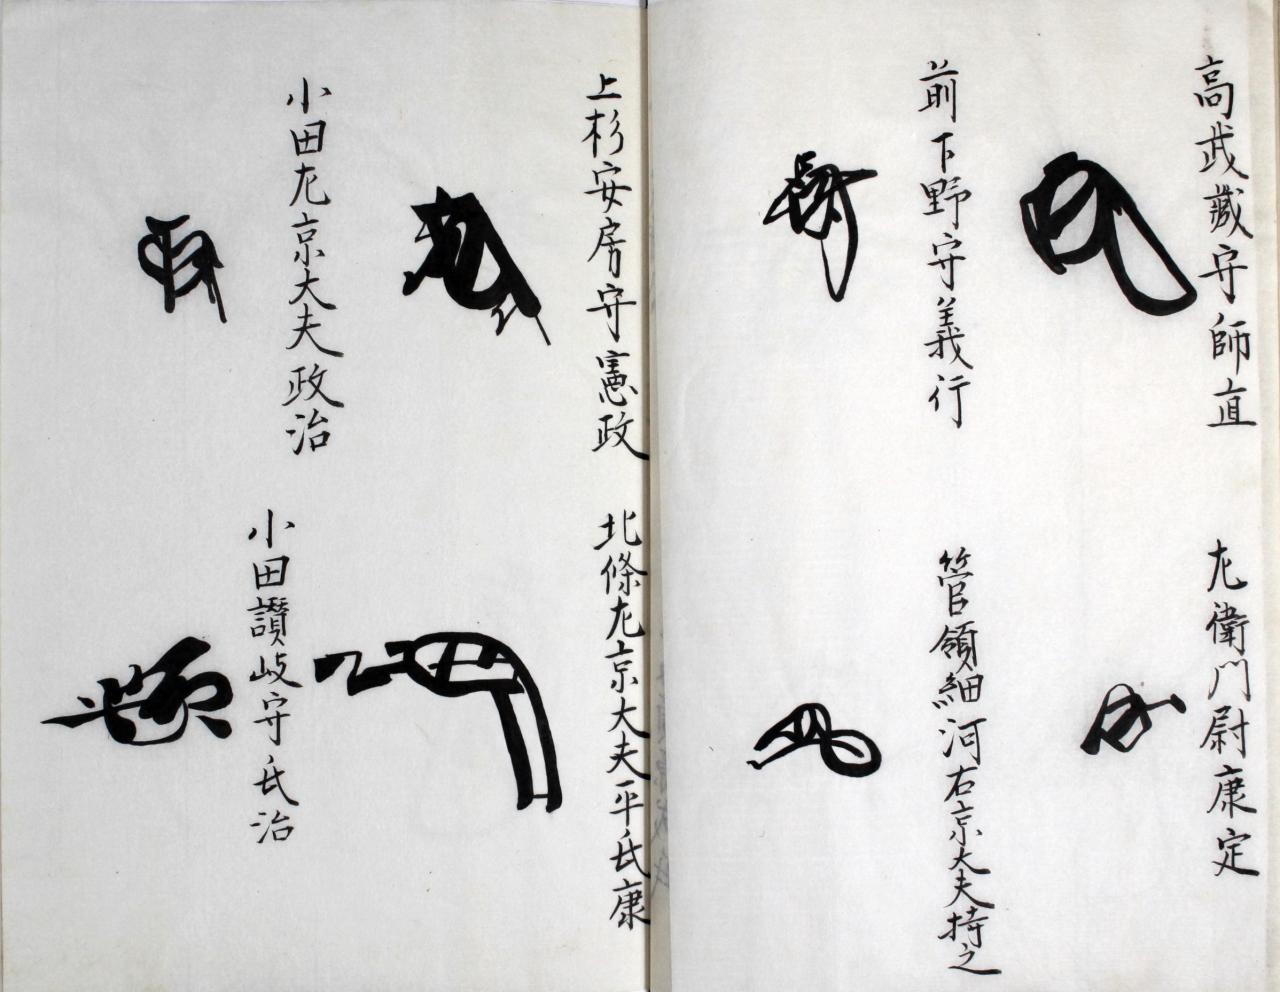 高武蔵守師直
左衛門尉康定
前下野守義行
管領細河右京大夫持之
上杉安房守憲政
北條左京大夫平氏康
小田左京大夫政治
小田讃岐守氏治